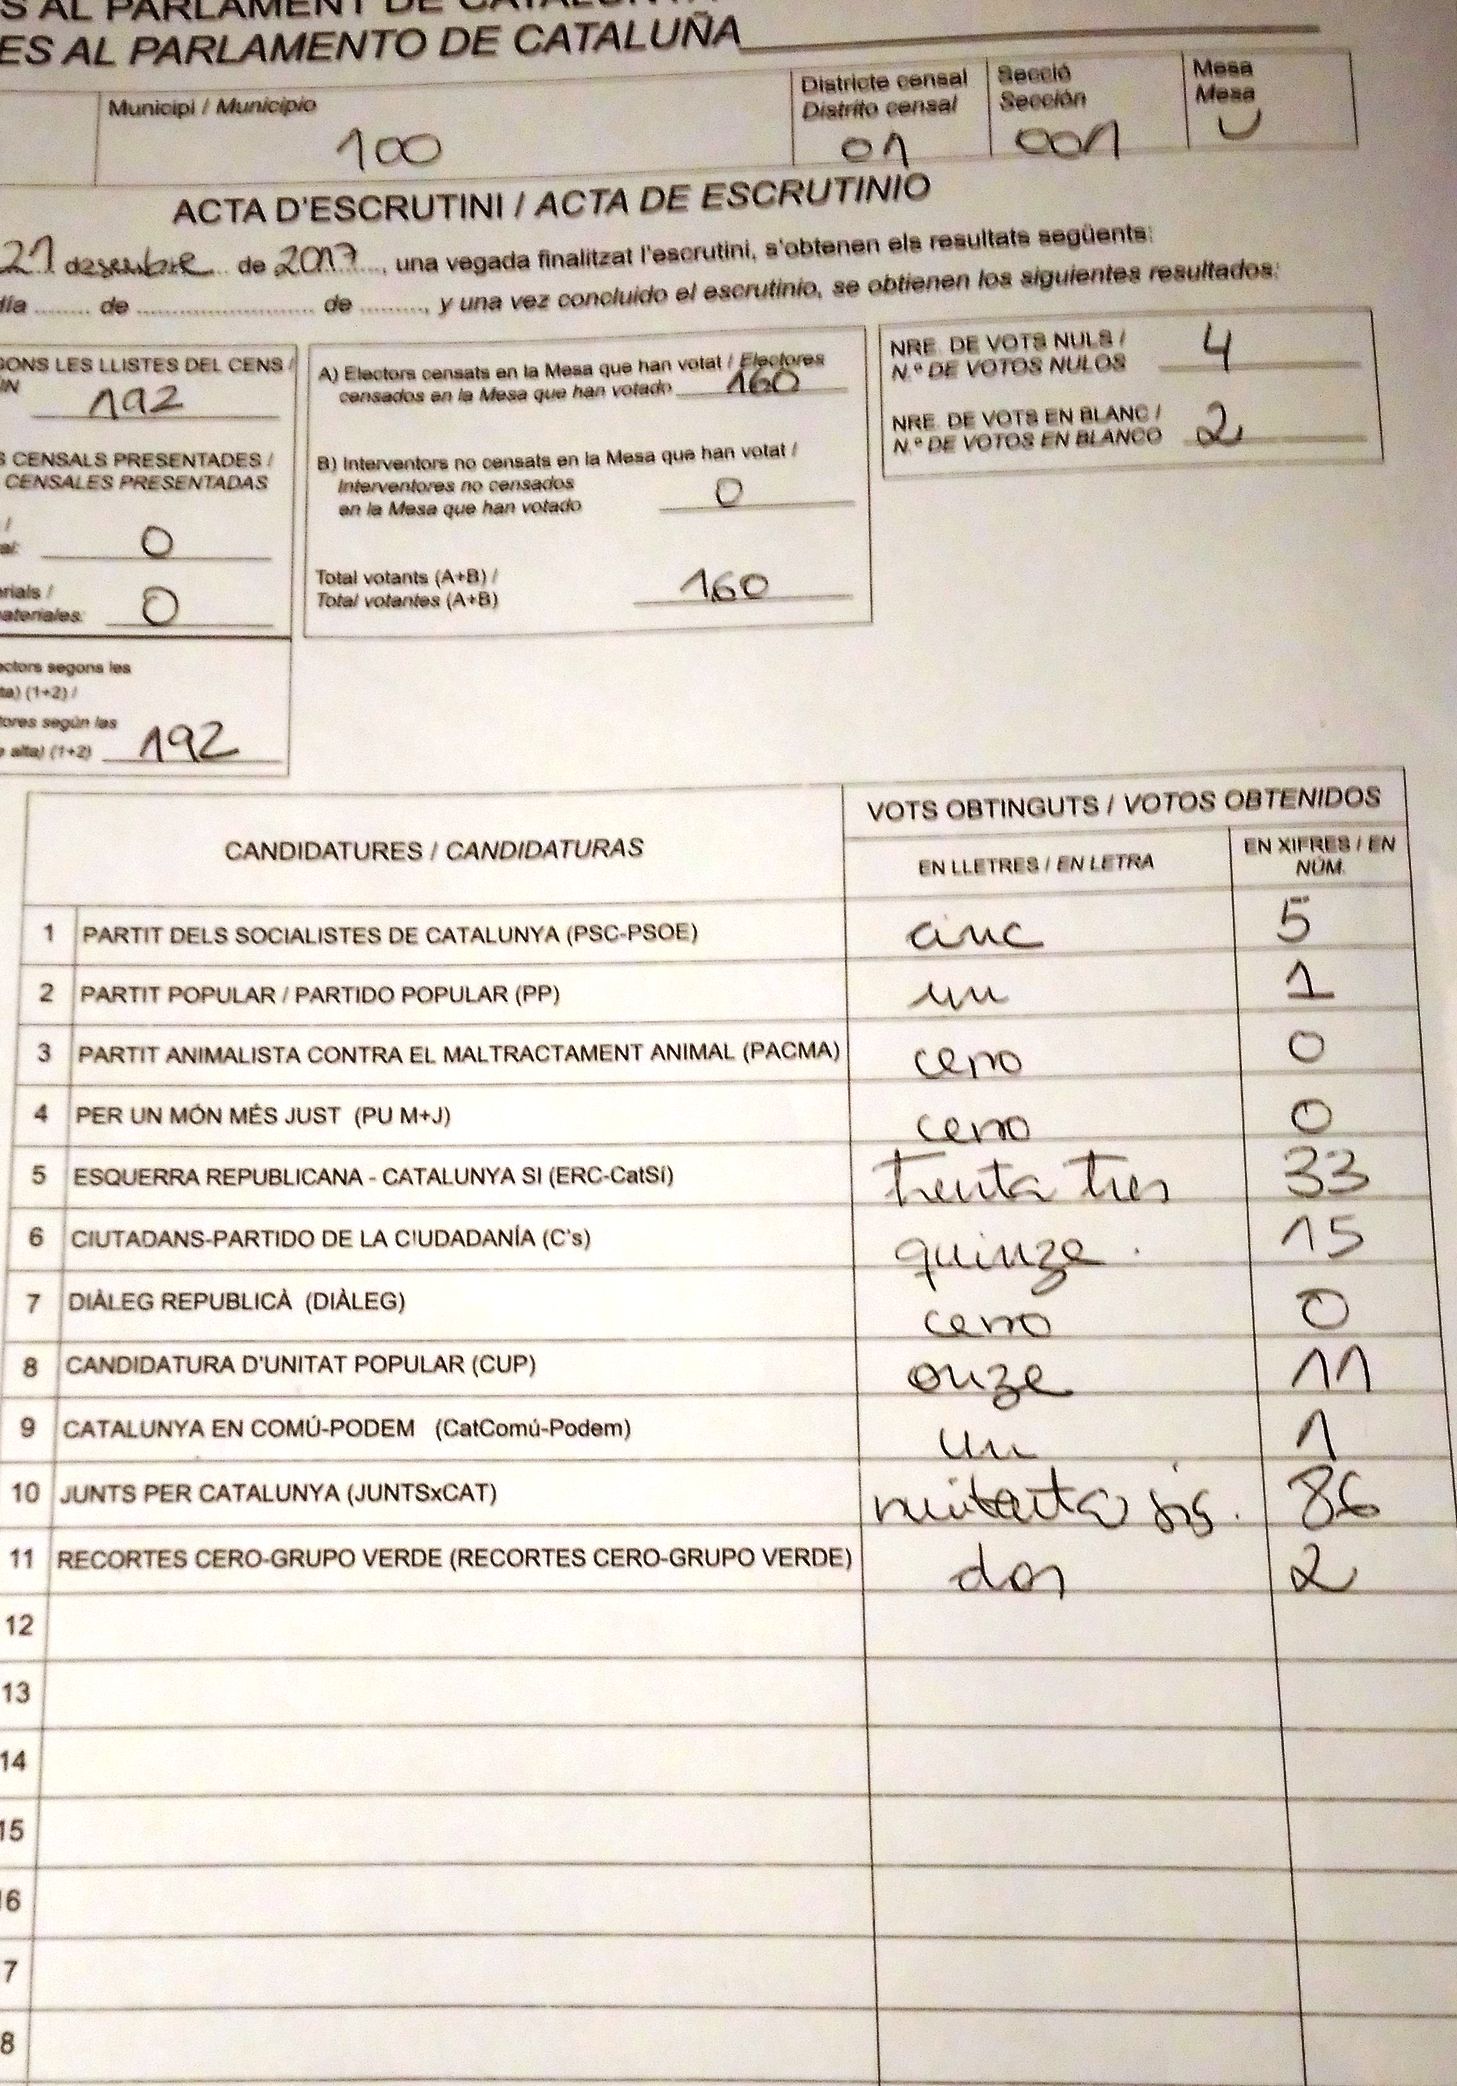 S AL PARLAMENT DE CATALUNYA
ES AL PARLAMENTO DE CATALUÑA
Municipi / Municipio
100
Districte censal
Distrito censal
01
Secció
Sección
001
Mesa
Mesa
U
ACTA D'ESCRUTINI / ACTA DE ESCRUTINIO
21 desembre de 2017, una vegada finalitzat l'escrutini, s'obtenen els resultats següents:
día ........ de .......................... de .........., y una vez concluido el escrutinio, se obtienen los siguientes resultados:
GONS LES LLISTES DEL CENS /
192
S CENSALS PRESENTADES /
CENSALES PRESENTADAS
/
al: 0
erials /
ateriales: 0
ectors segons les
ta) (1+2) /
tores según las
e alta) (1+2) 192
A) Electors censats en la Mesa que han votat / Electores
censados en la Mesa que han votado 160
B) Interventors no censats en la Mesa que han votat /
Interventores no censados
en la Mesa que han votado 0
Total votants (A+B) /
Total votantes (A+B) 160
NRE. DE VOTS NULS /
N.º DE VOTOS NULOS 4
NRE. DE VOTS EN BLANC /
N.º DE VOTOS EN BLANCO 2
CANDIDATURES / CANDIDATURAS
VOTS OBTINGUTS / VOTOS OBTENIDOS
EN LLETRES / EN LETRA
EN XIFRES / EN
NÚM.
1 PARTIT DELS SOCIALISTES DE CATALUNYA (PSC-PSOE) cinc 5
2 PARTIT POPULAR / PARTIDO POPULAR (PP) un 1
3 PARTIT ANIMALISTA CONTRA EL MALTRACTAMENT ANIMAL (PACMA) cero 0
4 PER UN MÓN MÉS JUST (PU M+J) cero 0
5 ESQUERRA REPUBLICANA - CATALUNYA SI (ERC-CatSí) trenta tres 33
6 CIUTADANS-PARTIDO DE LA CIUDADANÍA (C's) quinze . 15
7 DIÀLEG REPUBLICÀ (DIÀLEG) cero 0
8 CANDIDATURA D'UNITAT POPULAR (CUP) onze 11
9 CATALUNYA EN COMÚ-PODEM (CatComú-Podem) un 1
10 JUNTS PER CATALUNYA (JUNTSxCAT) sis. 86
11 RECORTES CERO-GRUPO VERDE (RECORTES CERO-GRUPO VERDE) dos 2
12
13
14
15
16
7
8